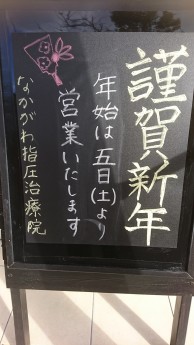 謹賀新年
年始は五日(土)より
営業いたします
なかがわ指圧治療院